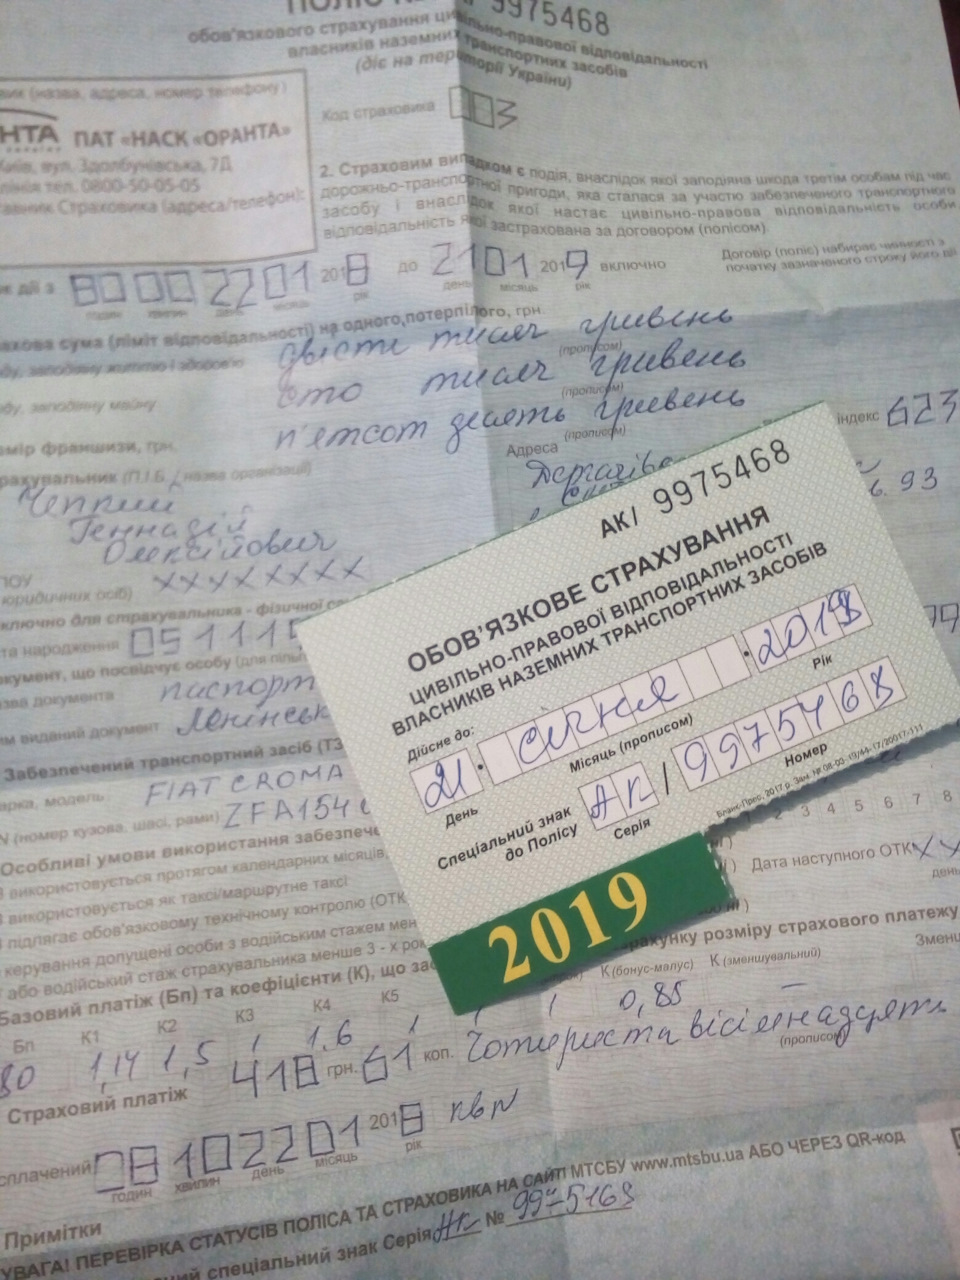 9975468
обов'язкового страхування цивільно-правової відповідальності
власників наземних транспортних засобів
(діє на території України)
(назва, адреса, номер телефону)
Код страховика 003
ПАТ «НАСК «ОРАНТА»
Київ, вул. Здолбунівська, 7Д
тел. 0800-50-05-05
Страховика (адреса/телефон):
2. Страховим випадком є подія, внаслідок якої заподіяна шкода третім особам під час
дорожньо-транспортної пригоди, яка сталася за участю забезпеченого транспортного
засобу і внаслідок якої настає цивільно-правова відповідальність особи
відповідальність якої застрахована за договором (полісом).
дії з 00 00 22 01 2018 до 21 01 2019 включно
Договір (поліс) набирає чинності з
початку зазначеного строку його дії
годин хвилин день місяць рік день місяць рік
сума (ліміт відповідальності) на одного потерпілого, грн.
заподіяну життю і здоров'ю двісті тисяч гривень
(прописом)
заподіяну майну сто тисяч гривень
(прописом)
франшизи, грн. п'ятсот десять гривень
(прописом)
(П.І.Б./назва організації)
Адреса
індекс 623
Геннадій
Олексійович
93
юридичних осіб) xxxxxxxx
для страхувальника - фізичної
народження 051115
документ, що посвідчує особу (для
документа паспорт
виданий документ
Забезпечений транспортний засіб (ТЗ
модель FIAT CROMA
(номер кузова, шасі, рами) ZFA154
Особливі умови використання
використовується протягом календарних місяців
використовується як таксі/маршрутне таксі
підлягає обов'язковому технічному контролю (ОТК
керування допущені особи з водійським стажем
або водійський стаж страхувальника менше 3 - х
Базовий платіж (Бп) та коефіцієнти (К), що
АК/ 9975468
ОБОВ'ЯЗКОВЕ СТРАХУВАННЯ
ЦИВІЛЬНО-ПРАВОВОЇ ВІДПОВІДАЛЬНОСТІ
ВЛАСНИКІВ НАЗЕМНИХ ТРАНСПОРТНИХ ЗАСОБІВ
Дійсне до:
21 січня 2019
День Місяць (прописом) Рік
Спеціальний знак
до Полісу
АК / 9975468
Серія Номер
2019
4 5 6 7 8
Дата наступного ОТК XX
розрахунку розміру страхового платежу
Бп К1 К2 К3 К4 К5 К(бонус-малус) К(зменшувальний)
80 1,14 1,5 1 1,6 1 1 1 0,85 —
Страховий платіж 418 грн. 61 коп. Чотириста вісімнадцять
(прописом)
сплачений 08 10 22 01 2018
годин хвилин день місяць рік
Примітки
УВАГА! ПЕРЕВІРКА СТАТУСІВ ПОЛІСА ТА СТРАХОВИКА НА САЙТІ МТСБУ www.mtsbu.ua АБО ЧЕРЕЗ QR-код
спеціальний знак Серія АК № 9975468